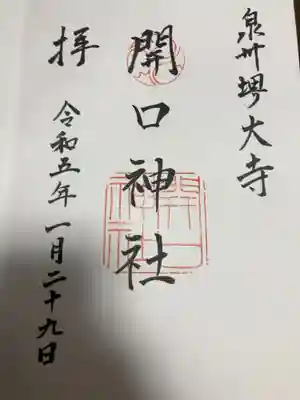 泉州堺大寺
開口神社
拝
令和五年一月二十九日